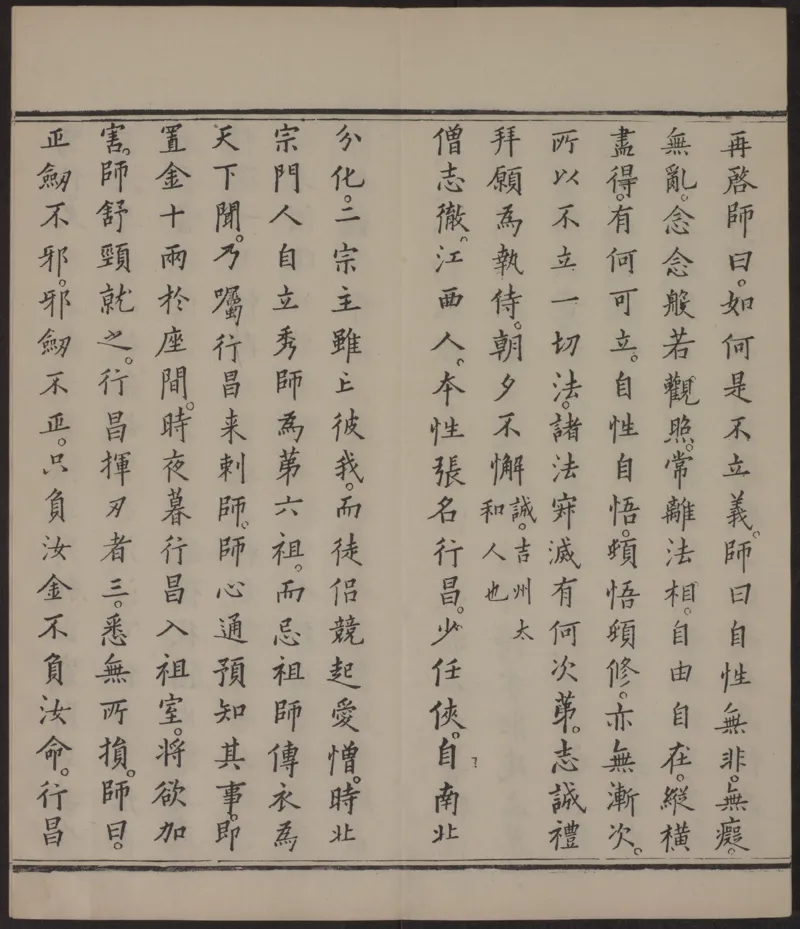 再啓師曰。如何是不立義。師曰自性無非。無癡。
無亂。念念般若觀照。常離法相。自由自在。縱橫
盡得。有何可立。自性自悟。頓悟頓修。亦無漸次。
所以不立一切法。諸法寂滅有何次第。志誠禮
拜願為執侍。朝夕不懈誠。吉州太和人也
僧志徹。江西人。本性張名行昌。少任俠。自南北
分化。二宗主雖亡彼我。而徒侶競起愛憎。時北
宗門人自立秀師為第六祖。而忌祖師傳衣為
天下聞。乃囑行昌来刺師。師心通預知其事。即
置金十兩於座間。時夜暮行昌入祖室。将欲加
害。師舒頸就之。行昌揮刃者三。悉無所損。師曰。
正劒不邪。邪劒不正。只負汝金不負汝命。行昌